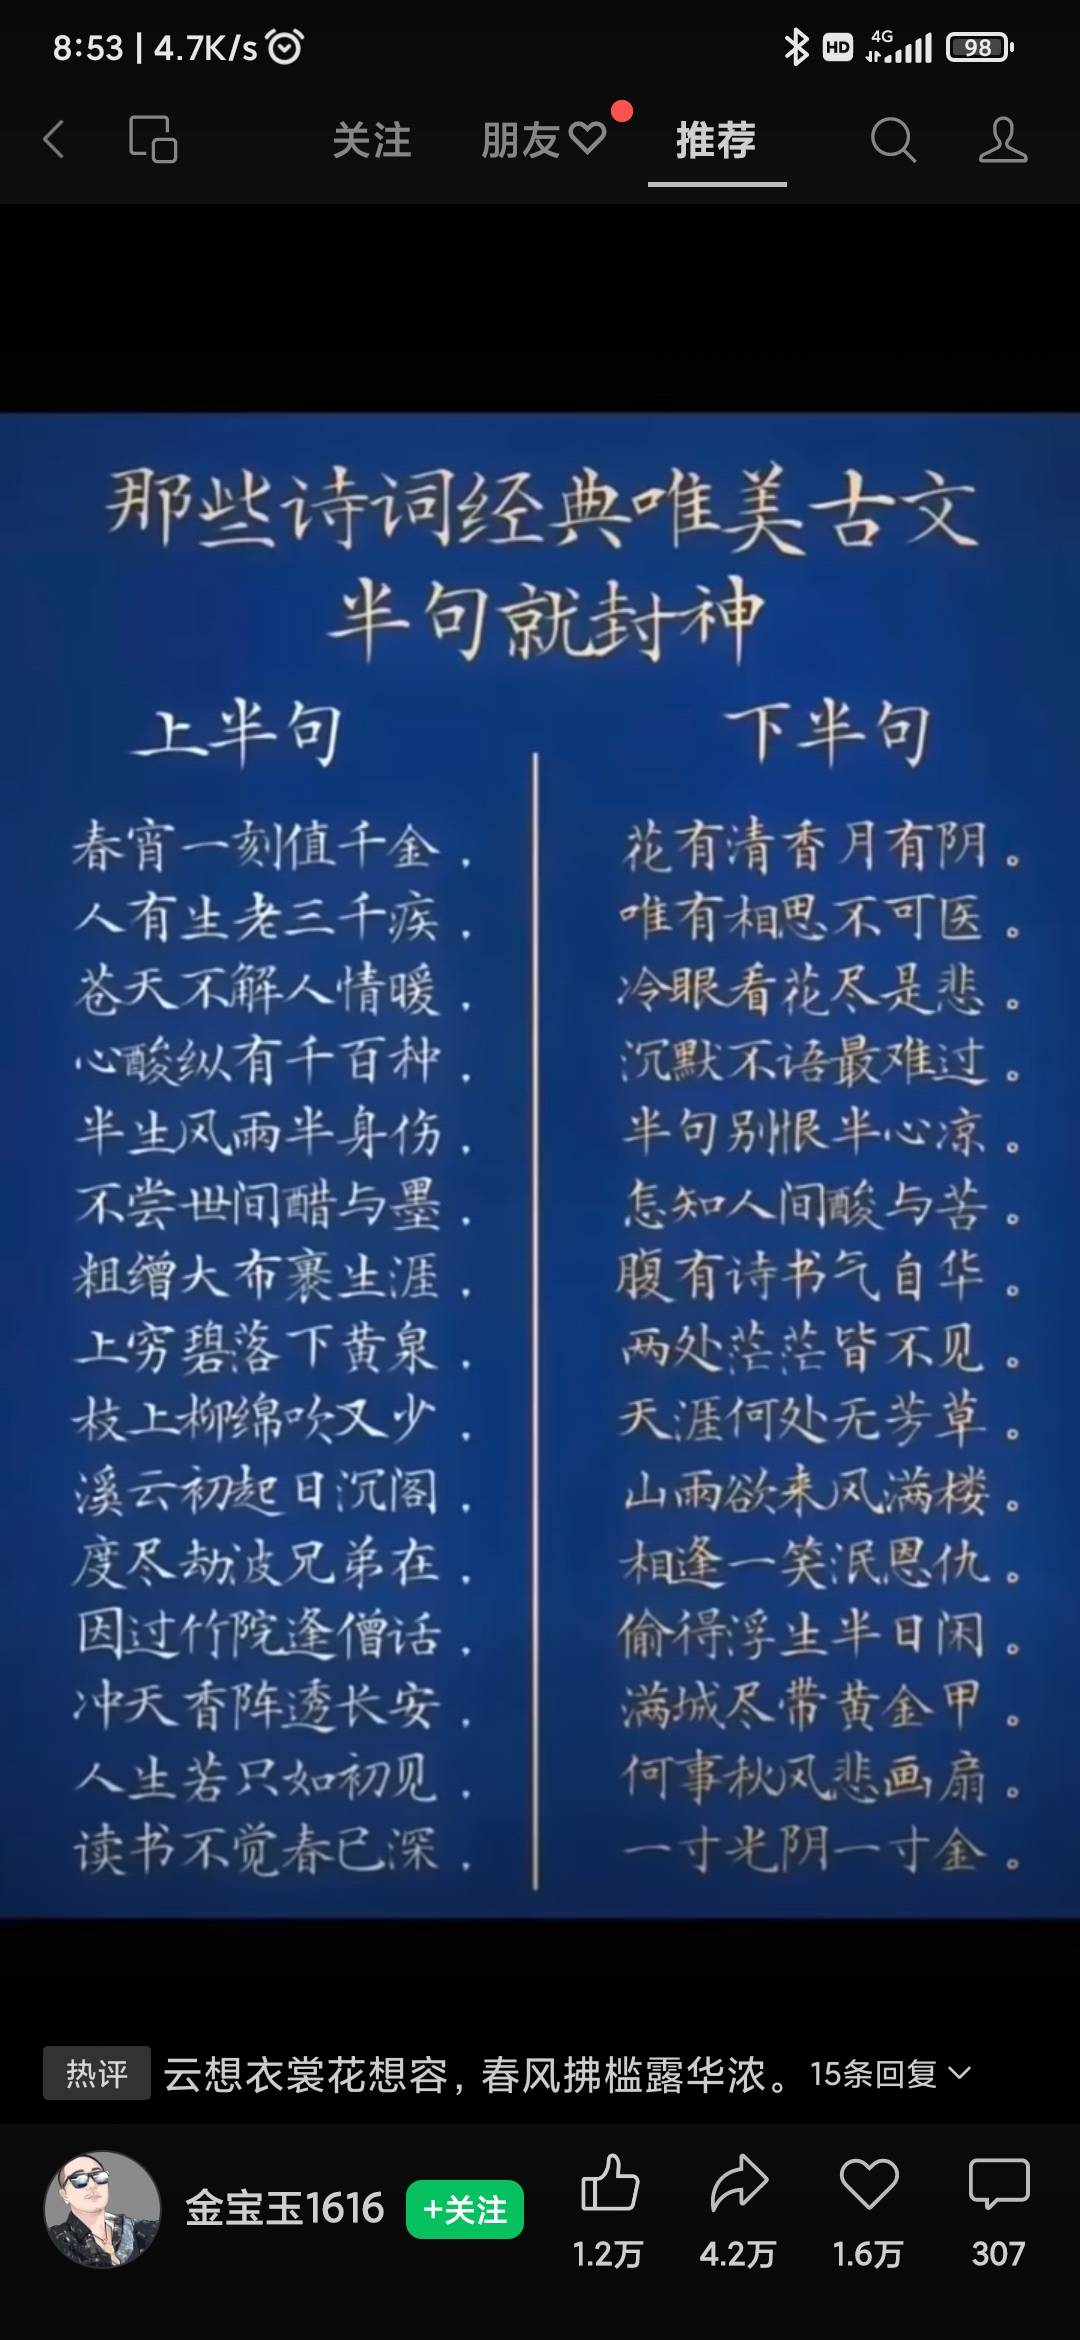 8:53 | 4.7K/s
HD 4G 98
关注 朋友 推荐
那些诗词经典唯美古文
半句就封神
上半句 下半句
春宵一刻值千金， 花有清香月有阴。
人有生老三千疾， 唯有相思不可医。
苍天不解人情暖， 冷眼看花尽是悲。
心酸纵有千百种， 沉默不语最难过。
半生风雨半身伤， 半句别恨半心凉。
不尝世间醋与墨， 怎知人间酸与苦。
粗缯大布裹生涯， 腹有诗书气自华。
上穷碧落下黄泉， 两处茫茫皆不见。
枝上柳绵吹又少， 天涯何处无芳草。
溪云初起日沉阁， 山雨欲来风满楼。
度尽劫波兄弟在， 相逢一笑泯恩仇。
因过竹院逢僧话， 偷得浮生半日闲。
冲天香阵透长安， 满城尽带黄金甲。
人生若只如初见， 何事秋风悲画扇。
读书不觉春已深， 一寸光阴一寸金。
热评 云想衣裳花想容，春风拂槛露华浓。 15条回复
金宝玉1616 +关注
1.2万 4.2万 1.6万 307